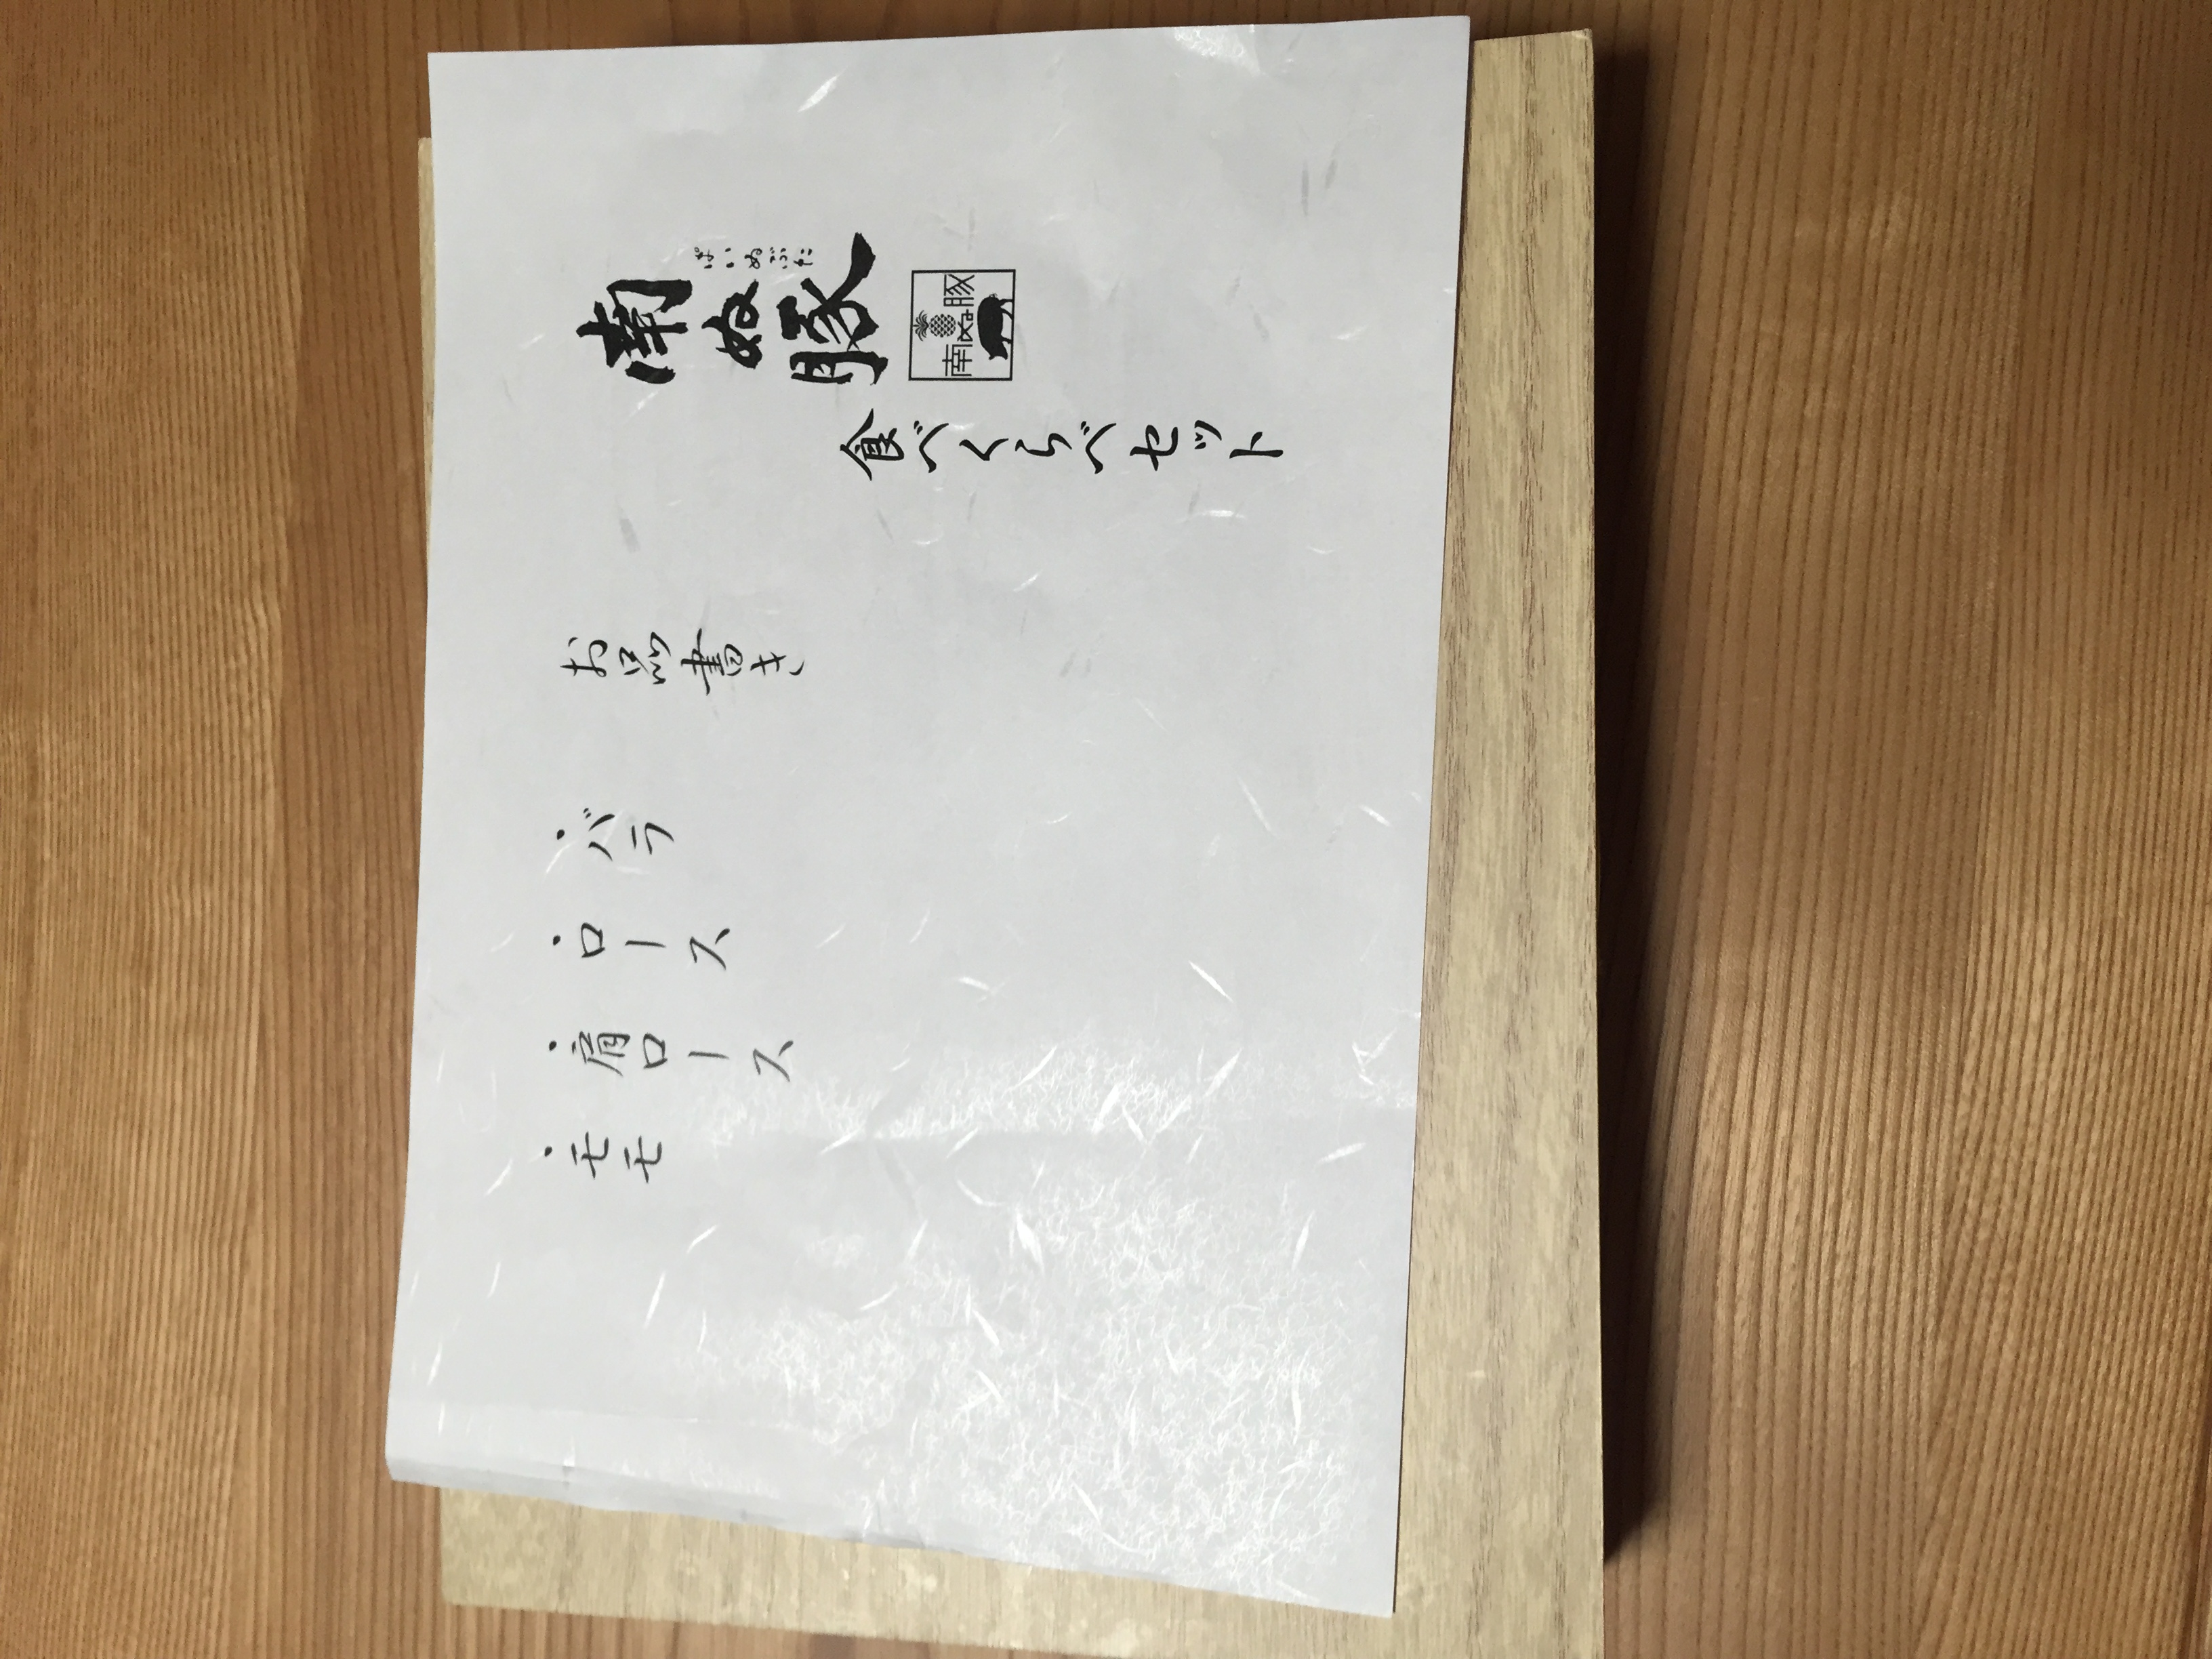 ぱいぬぶた
南ぬ豚
南ぬ豚
食べくらべセット
お品書き
・バラ
・ロース
・肩ロース
・モモ